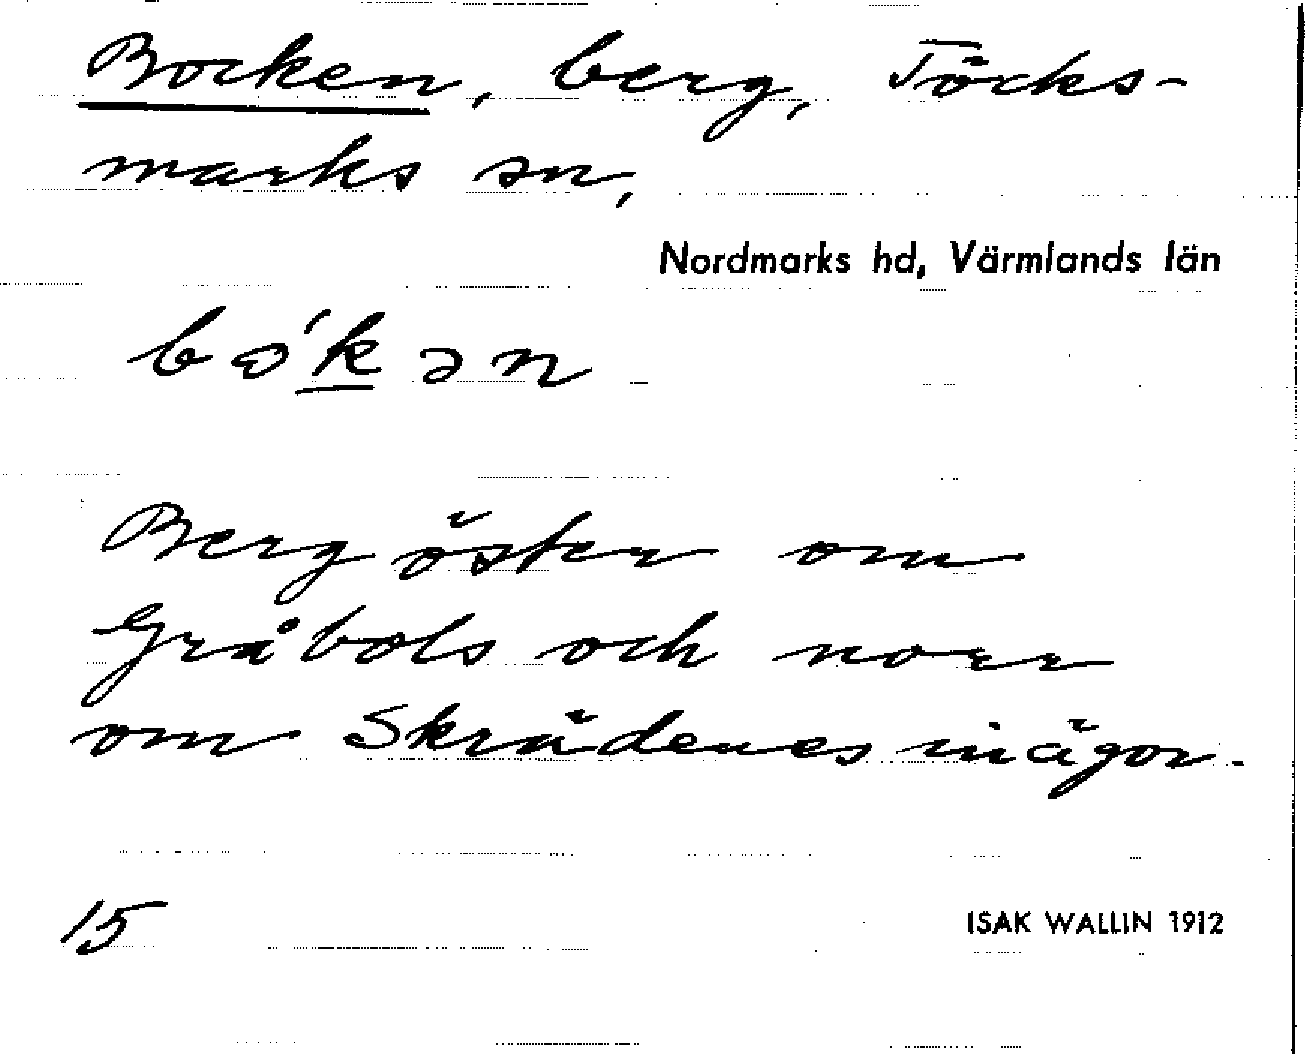 Bocken, berg, Töcks-
marks sn,
Nordmarks hd, Värmlands län
bo'kən
Berg öster om
Gråbols och norr
om Skrädenes inägor.
15 ISAK WALLIN 1912